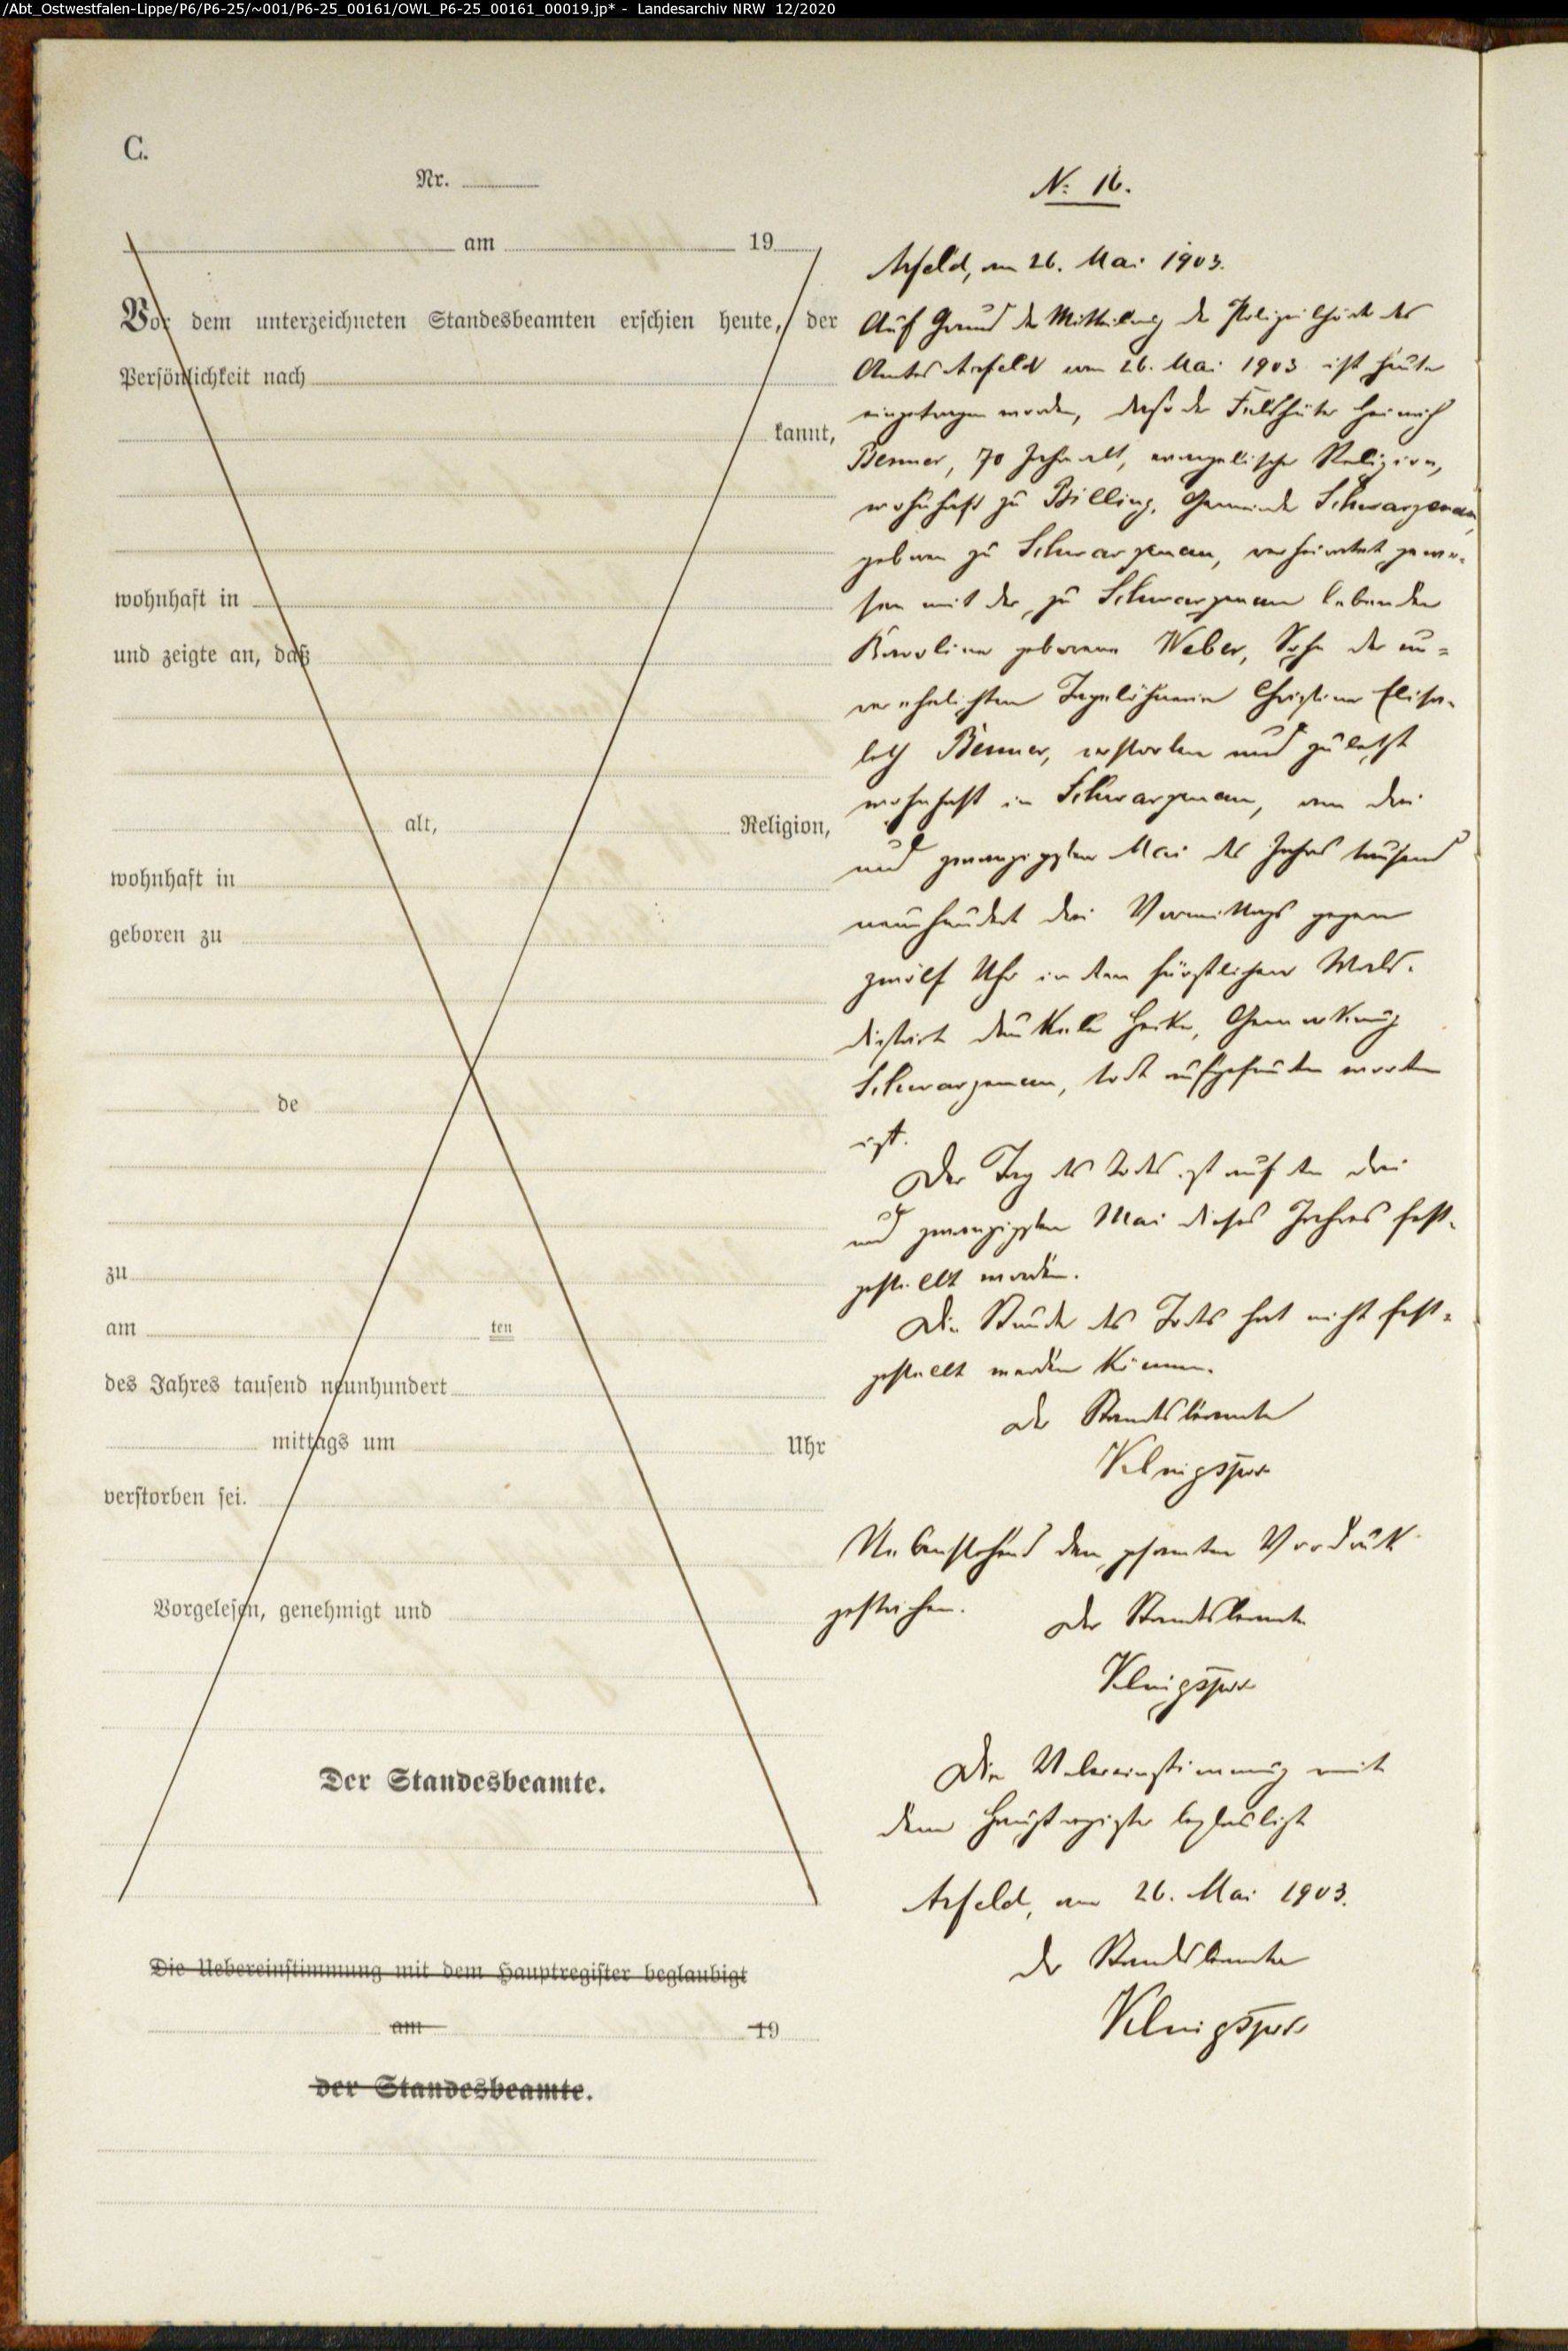 /Abt_Ostwestfalen-Lippe/P6/P6-25/~001/P6-25_00161/OWL_P6-25_00161_00019.jp* - Landesarchiv NRW 12/2020
C.
Nr.
am 19
Vor dem unterzeichneten Standesbeamten erschien heute, der
Persönlichkeit nach
kannt,
wohnhaft in
und zeigte an, daß
alt, Religion,
wohnhaft in
geboren zu
de
zu
am ten
des Jahres tausend neunhundert
mittags um Uhr
verstorben sei.
Vorgelesen, genehmigt und
Der Standesbeamte.
Die Uebereinstimmung mit dem Hauptregister beglaubigt
am 19
der Standesbeamte.
N: 16.
Arfeld, am 26. Mai 1903.
Auf Grund der Mittheilung der Polizeibehörde des
Amtes Arfeld vom 26. Mai 1903 ist heute
eingetragen worden, daß der Feldhüter Heinrich
Benner, 70 Jahre alt, evangelischer Religion,
wohnhaft zu Billing, Gemeinde Schwarzenau,
geboren zu Schwarzenau, verheirathet gewe-
sen mit der zu Schwarzenau lebenden
Karoline geborenen Weber, Sohn der un=
verehelichten Tagelöhnerin Christine Elisa-
beth Benner, verstorben und zuletzt
wohnhaft in Schwarzenau, am drei
und zwanzigsten Mai des Jahres tausend
neunhundert drei Vormittags gegen
zwölf Uhr in dem fürstlichen Wald-
distrikt dunkele Hecke, Gemarkung
Schwarzenau, todt aufgefunden worden
ist.
Der Tag des Todes ist auf den drei
und zwanzigsten Mai dieses Jahres fest-
gestellt worden.
Die Stunde des Todes hat nicht fest=
gestellt werden können.
Der Standesbeamte
Nebenstehend den gesamten Vordruck
gestrichen.
Der Standesbeamte
Die Uebereinstimmung mit
dem Hauptregister beglaubigt
Arfeld, am 26. Mai 1903.
Der Standesbeamte